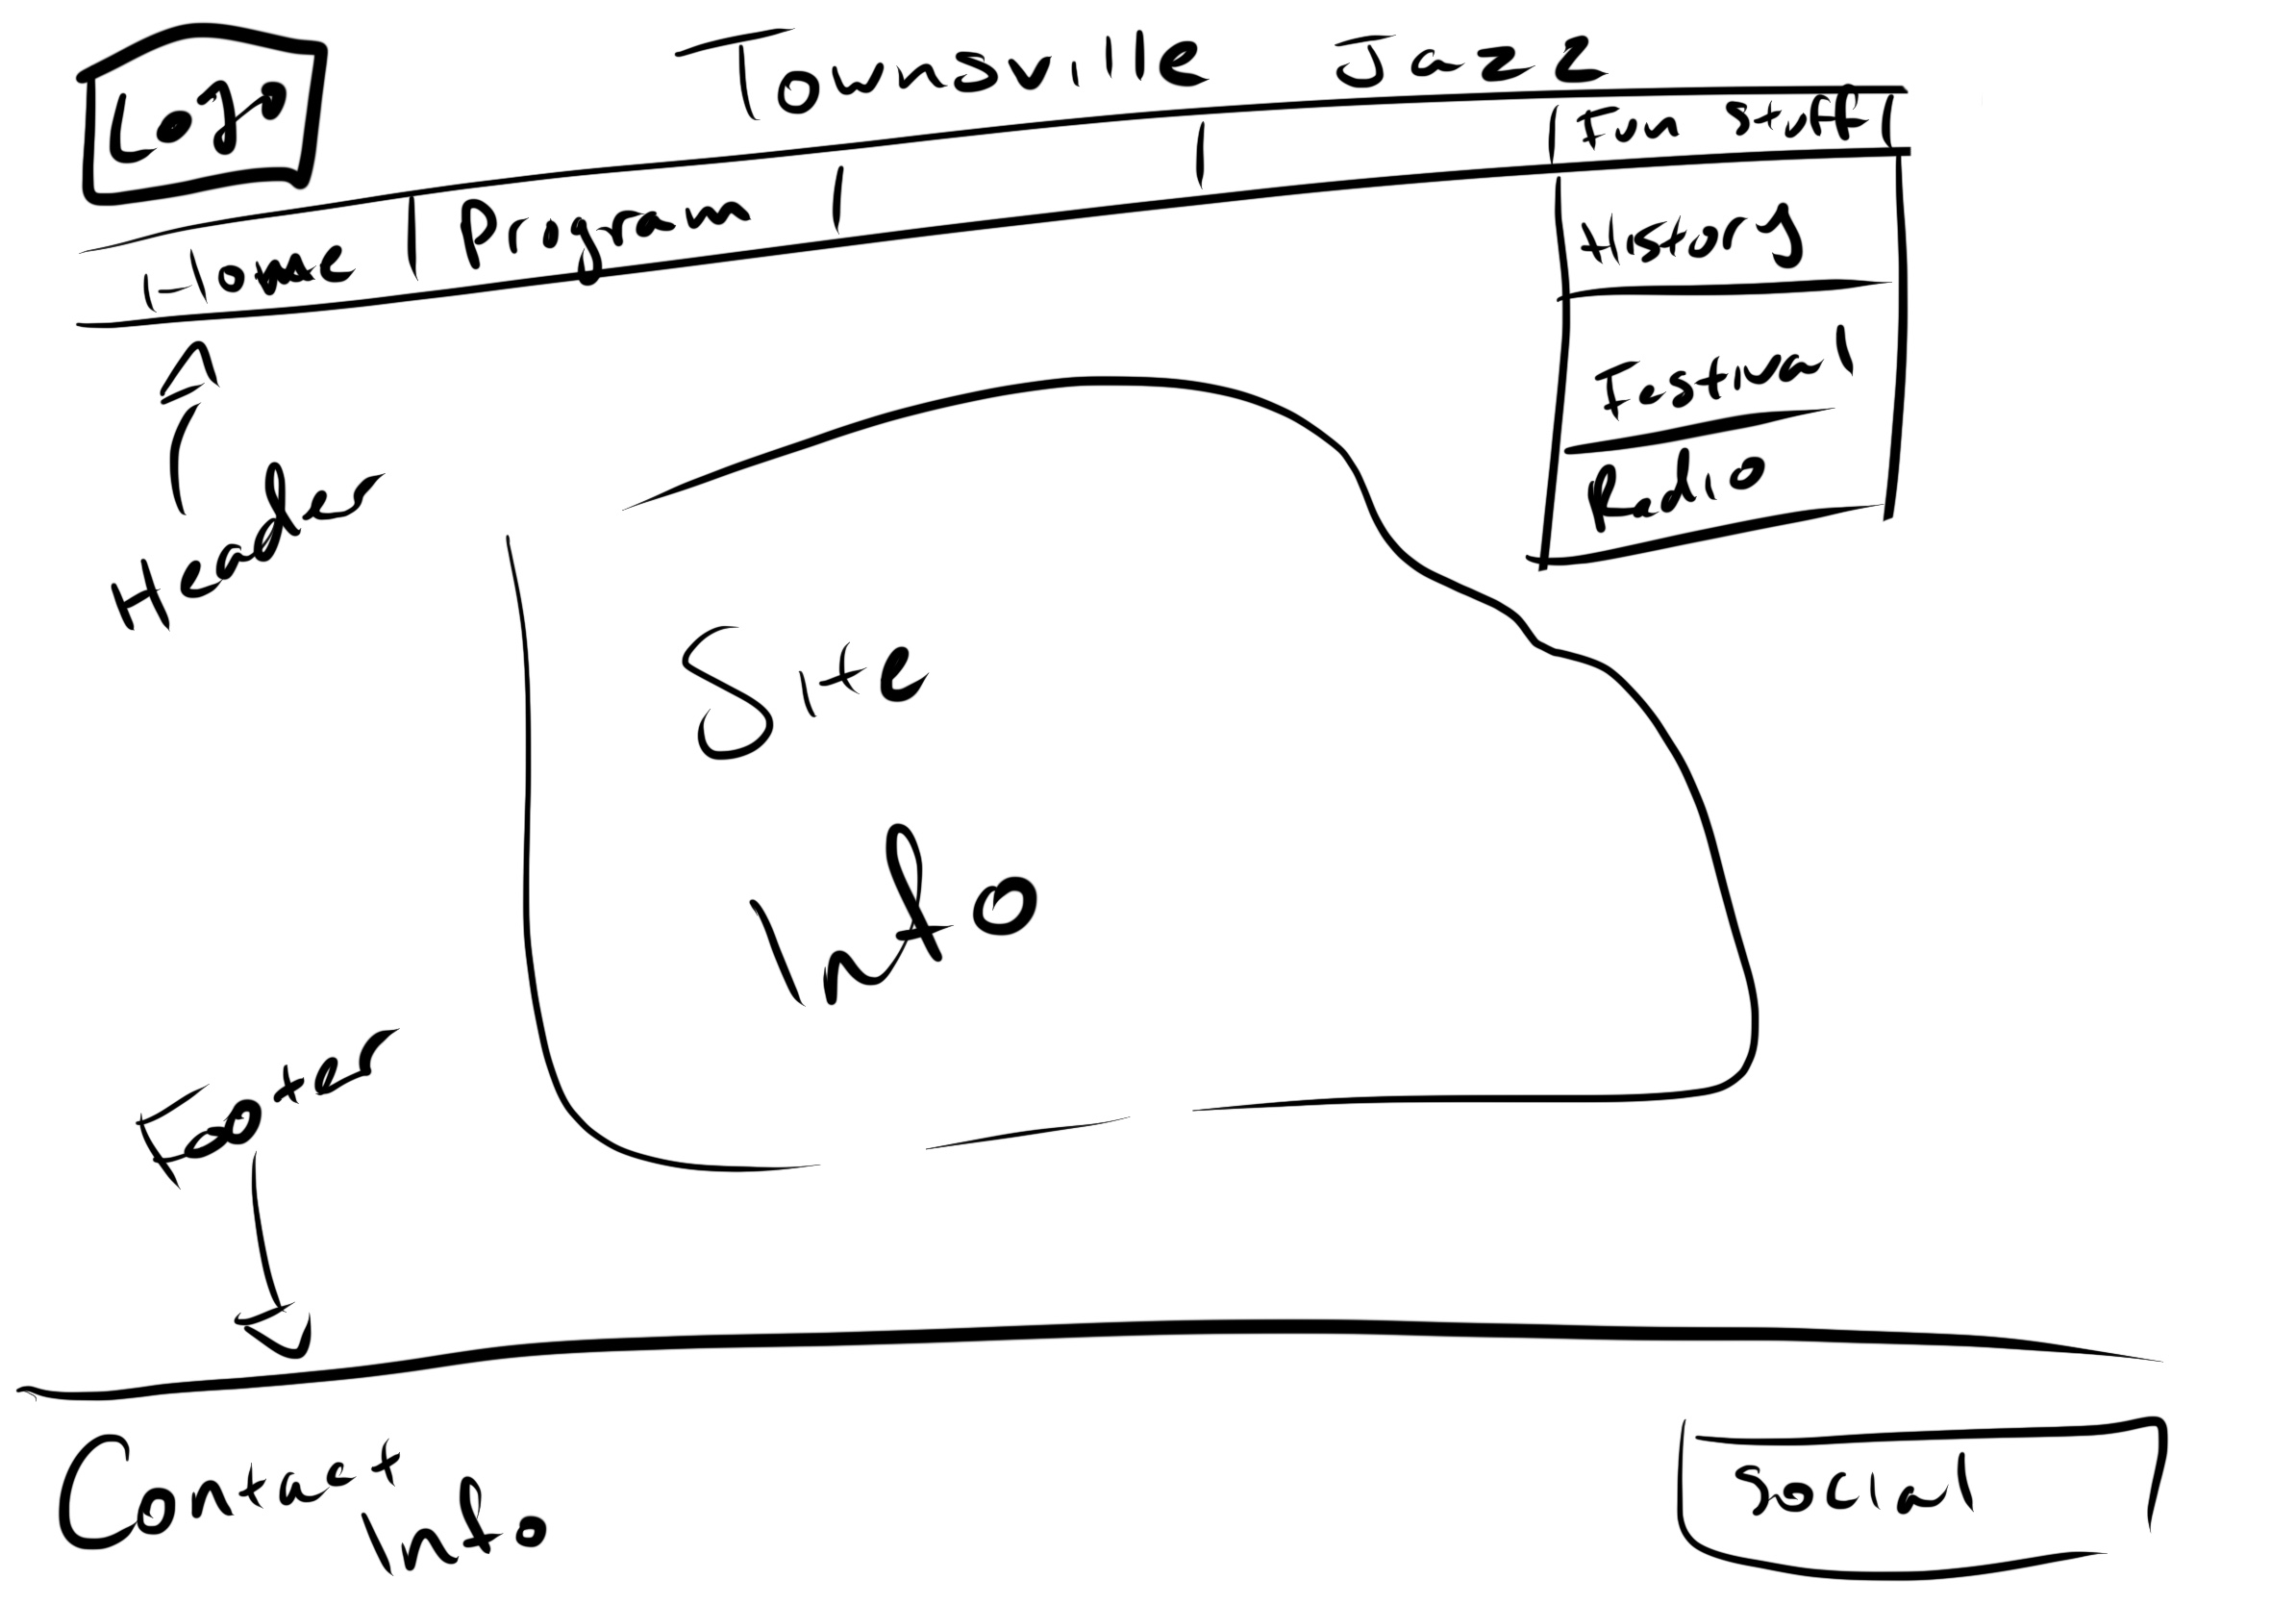 Logo
Townsville Jazz
Home Program Fun Stuff
History
Festival
Radio
Header
Site
Info
Footer
Contact
Info
Social